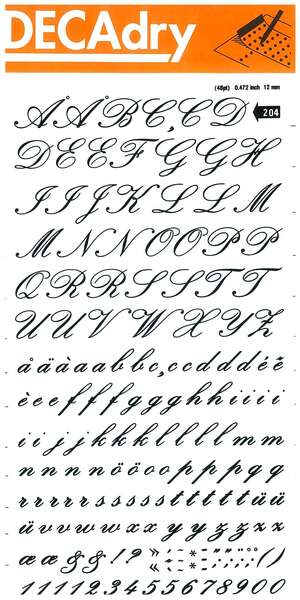 DECAdry
(48pt) 0.472 inch 12 mm
Å Å B C Ç D
204
D E E F G G H
I I J J K L L M
M N N O O P P
Q R R S S T T
U U V W X Y Z
å ä ä à a a b b c ç c d d d d é ê
è e e e f f f g g g h h i i i i
i i j k k l l l l l m m m
n n n n n ö ö o o o p p p q q
r r r r r s s s s s t t t t t ü ü
ü u v v u w w x x y y z z
æ æ & & ! ? » « * ( )
1 1 1 2 2 3 3 4 5 5 6 7 8 9 0 0